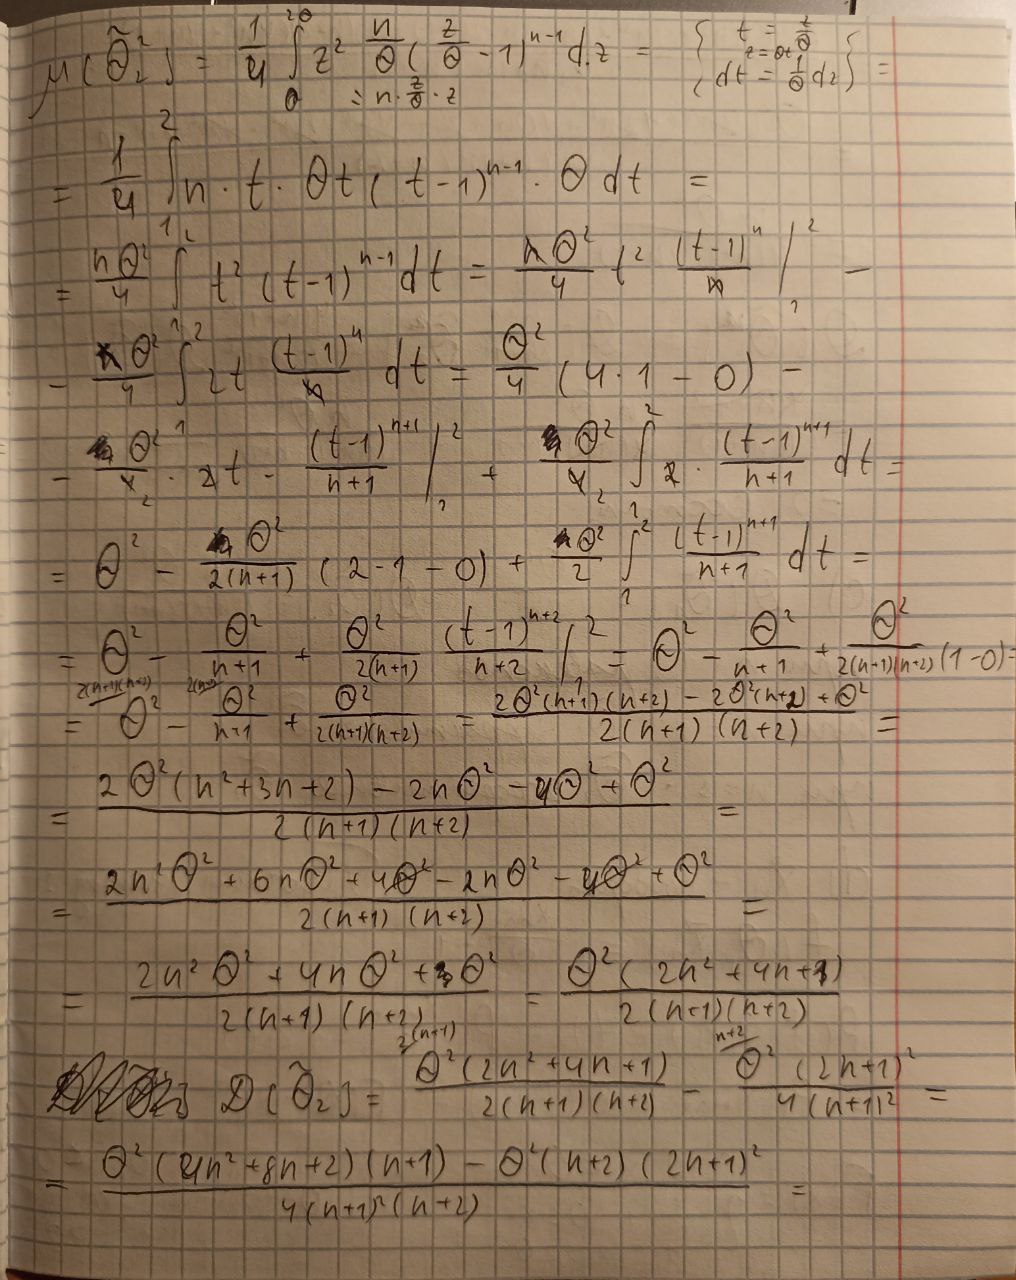 M[θ̃₂²] = 1/4 ∫_θ^{2θ} z² n/θ (z/θ - 1)^{n-1} dz = { t = z/θ, z = θt, dt = 1/θ dz } =
= n · z/θ · z
= 1/4 ∫_1^2 n · t · θt (t-1)^{n-1} · θ dt =
= nθ²/4 ∫_1^2 t² (t-1)^{n-1} dt = nθ²/4 t² (t-1)^n/n |_1^2 -
- nθ²/4 ∫_1^2 2t (t-1)^n/n dt = θ²/4 (4·1 - 0) -
- θ²/4 2 · 2t - (t-1)^{n+1}/(n+1) |_1^2 + θ²/4 2 ∫_1^2 2 · (t-1)^{n+1}/(n+1) dt =
= θ² - θ²/2(n+1) (2·1 - 0) + θ²/2 ∫_1^2 (t-1)^{n+1}/(n+1) dt =
= θ² - θ²/(n+1) + θ²/2(n+1) (t-1)^{n+2}/(n+2) |_1^2 = θ² - θ²/(n+1) + θ²/2(n+1)(n+2) (1-0) =
= θ² - θ²/(n+1) + θ²/2(n+1)(n+2) = (2θ²(n+1)(n+2) - 2θ²(n+2) + θ²)/2(n+1)(n+2) =
= (2θ²(n²+3n+2) - 2nθ² - 4θ² + θ²)/2(n+1)(n+2) =
= (2n²θ² + 6nθ² + 4θ² - 2nθ² - 4θ² + θ²)/2(n+1)(n+2) =
= (2n²θ² + 4nθ² + θ²)/2(n+1)(n+2) = θ²(2n² + 4n + 1)/2(n+1)(n+2)
D[θ̃₂] = θ²(2n² + 4n + 1)/2(n+1)(n+2) - θ²(2n+1)²/4(n+1)² =
= (θ²(4n² + 8n + 2)(n+1) - θ²(n+2)(2n+1)²)/4(n+1)²(n+2) =